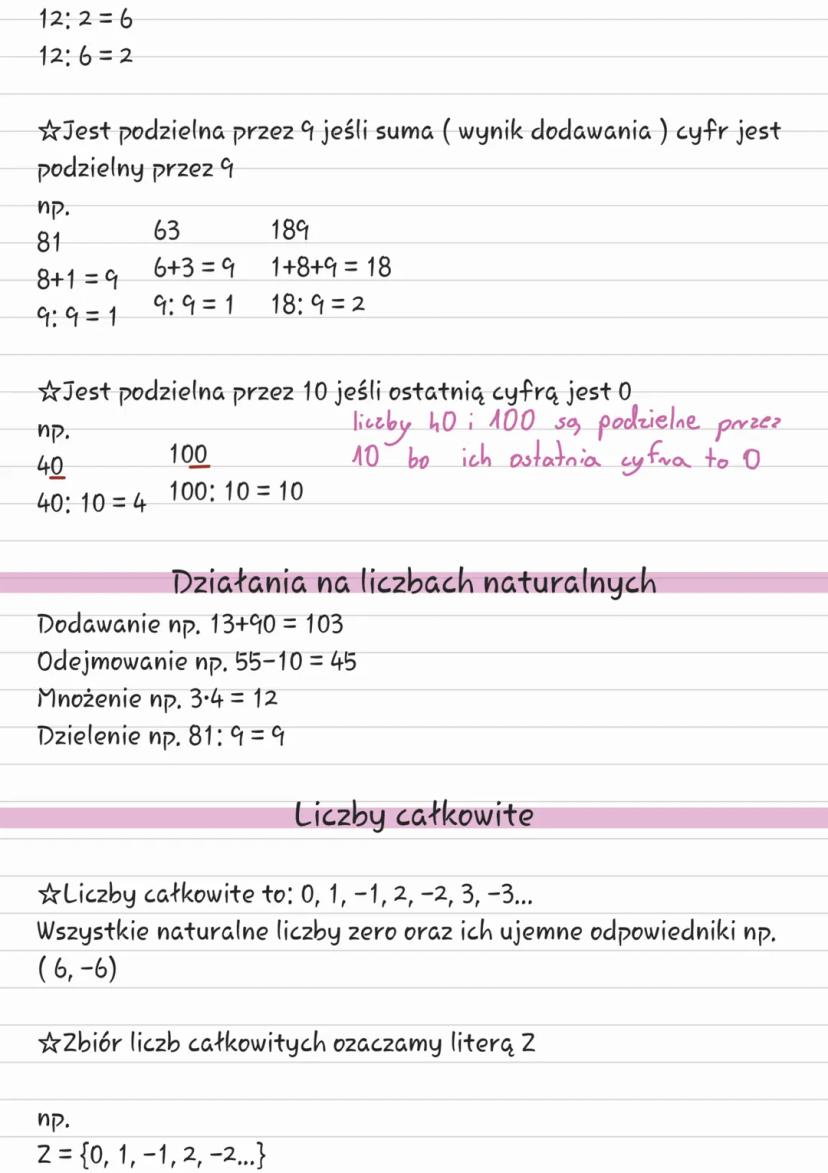 12: 2 = 6
12: 6 = 2
☆Jest podzielna przez 9 jeśli suma ( wynik dodawania ) cyfr jest
podzielny przez 9
np.
81 63 189
8+1 = 9 6+3 = 9 1+8+9 = 18
9: 9 = 1 9: 9 = 1 18: 9 = 2
☆Jest podzielna przez 10 jeśli ostatnią cyfrą jest 0
np. liczby 40 i 100 są podzielne przez
40 100 10 bo ich ostatnia cyfra to 0
40: 10 = 4 100: 10 = 10
Działania na liczbach naturalnych
Dodawanie np. 13+90 = 103
Odejmowanie np. 55-10 = 45
Mnożenie np. 3·4 = 12
Dzielenie np. 81: 9 = 9
Liczby całkowite
☆Liczby całkowite to: 0, 1, -1, 2, -2, 3, -3...
Wszystkie naturalne liczby zero oraz ich ujemne odpowiedniki np.
( 6, -6)
☆Zbiór liczb całkowitych ozaczamy literą Z
np.
Z = {0, 1, -1, 2, -2...}